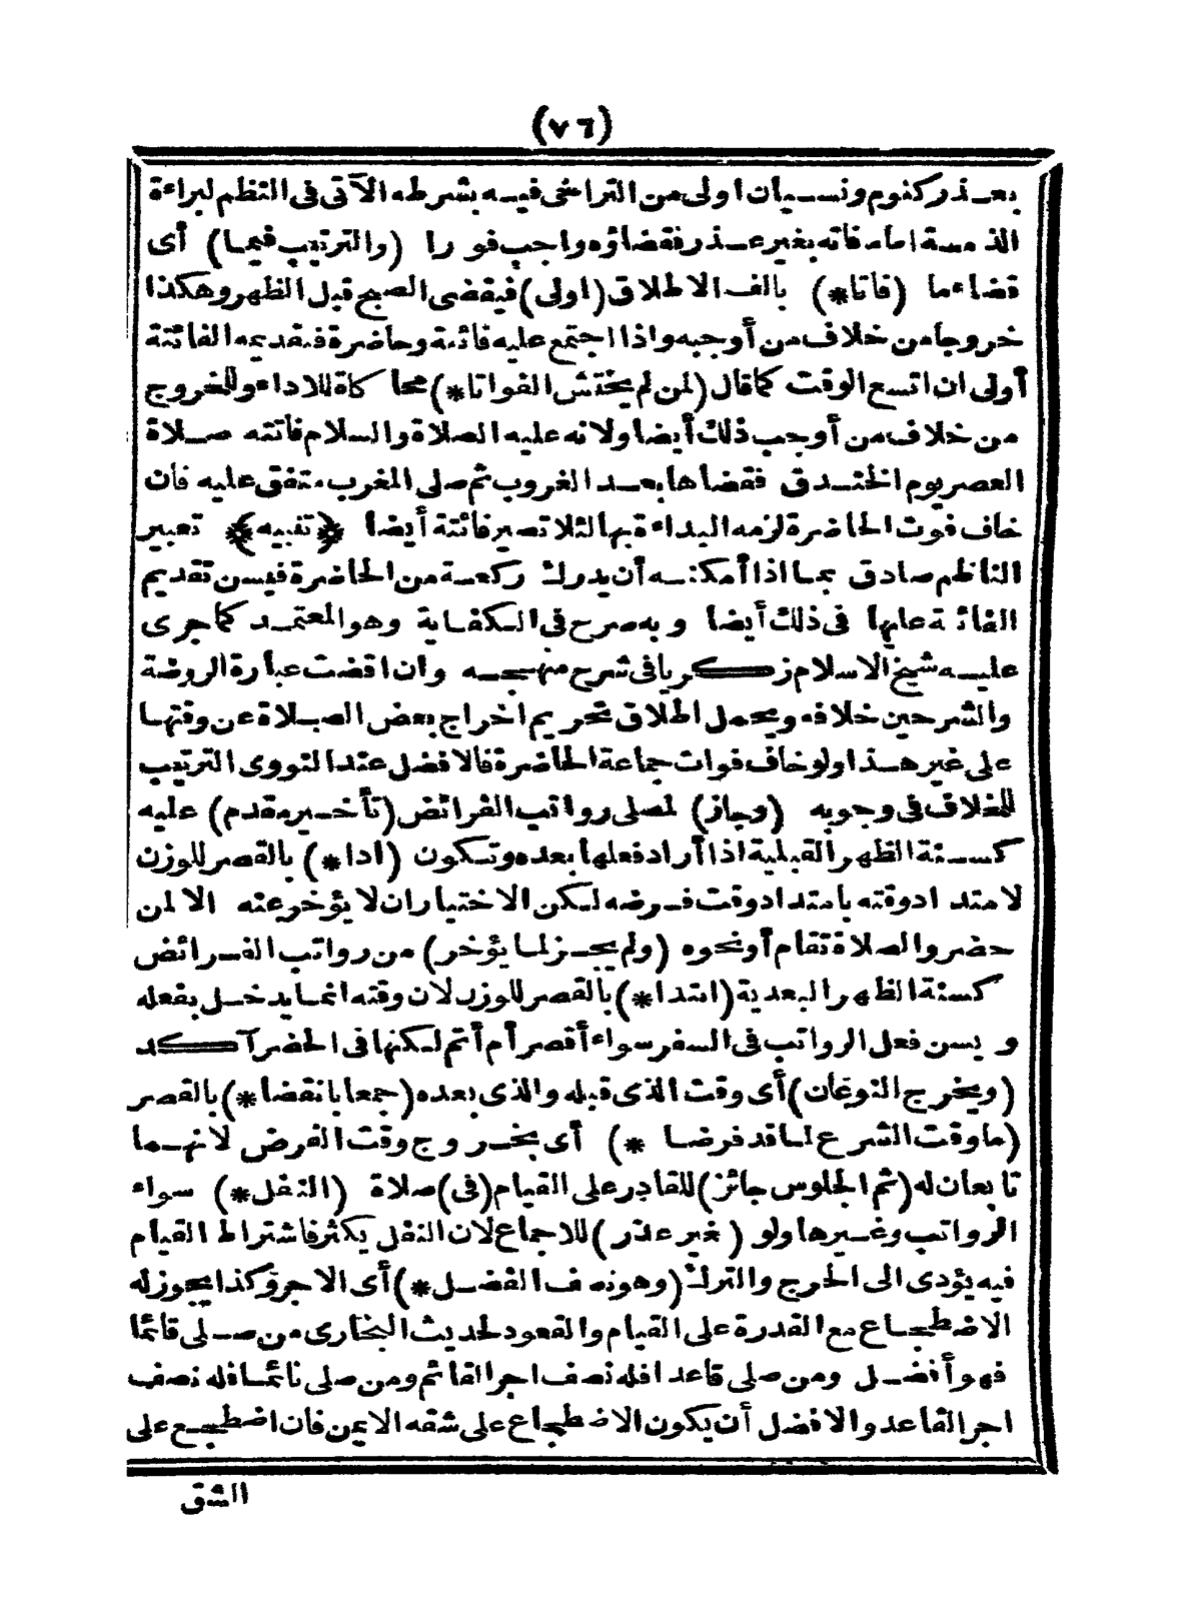 (٧٦)
بعذر كنوم ونسيان اولى من التراخى فيه بشرطه الآتى فى النظم لبراءة
الذمسة اما ما فاته بغير عذر فقضاؤه واجب فورا (والترتيب فيما) أى
قضاء ما (فاتا*) بالف الاطلاق (اولى) فيقضى الصبح قبل الظهر وهكذا
خروجا من خلاف من أوجبه واذا اجتمع عليه فائتة وحاضرة فتقديمه الفائتة
أولى ان اتسع الوقت كما قال (لمن لم يختش الفواتا*) محاكاة للاداء وللخروج
من خلاف من أوجب ذلك أيضا ولانه عليه الصلاة والسلام فاتته صلاة
العصر يوم الخندق فقضاها بعد الغروب ثم صلى المغرب متفق عليه فان
خاف فوت الحاضرة لزمه البداءة بها لئلا تصير فائتة أيضا ﴿تنبيه﴾ تعبير
الناظم صادق بما اذا أمكنه أن يدرك ركعة من الحاضرة فيسن تقديم
الفائتة عليها فى ذلك أيضا وبه صرح فى الكفاية وهو المعتمد كما جرى
عليه شيخ الاسلام زكريا فى شرح منهجه وان اقضت عبارة الروضة
والشرحين خلافه ويحمل اطلاق تحريم اخراج بعض الصلاة عن وقتها
على غير هذا ولو خاف فوات جماعة الحاضرة فالافضل عند النووى الترتيب
للخلاف فى وجوبه (وجاز) لمصلى رواتب الفرائض (تأخير مقدم) عليه
كسنة الظهر القبلية اذا أراد فعلها بعده وتكون (ادا*) بالقصر للوزن
لامتداد وقته بامتداد وقت فرضه لكن الاختيار ان لا يؤخر عنه الا لمن
حضر والصلاة تقام أو نحوه (ولم يجز لما يؤخر) من رواتب الفرائض
كسنة الظهر البعدية (ابتدا*) بالقصر للوزن لان وقته انما يدخل بفعله
ويسن فعل الرواتب فى السفر سواء أقصر أم أتم لكنها فى الحضر آكد
(ويخرج النوعان) أى وقت الذى قبله والذى بعده (جمعا بانقضا*) بالقصر
(ما وقت الشرع لما قد فرضا *) أى بخروج وقت الفرض لانهما
تابعان له (ثم الجلوس جائز) للقادر على القيام (فى) صلاة (النفل*) سواء
الرواتب وغيرها ولو (غير عذر) للاجماع لان النفل يكثر فاشتراط القيام
فيه يؤدى الى الحرج والترك (وهو نصف الفضل*) أى الاجر وكذا يجوز له
الاضطجاع مع القدرة على القيام والقعود لحديث البخارى من صلى قائما
فهو أفضل ومن صلى قاعدا فله نصف اجر القائم ومن صلى نائما فله نصف
اجر القاعد والافضل أن يكون الاضطجاع على شقه الايمن فان اضطجع على
الشق